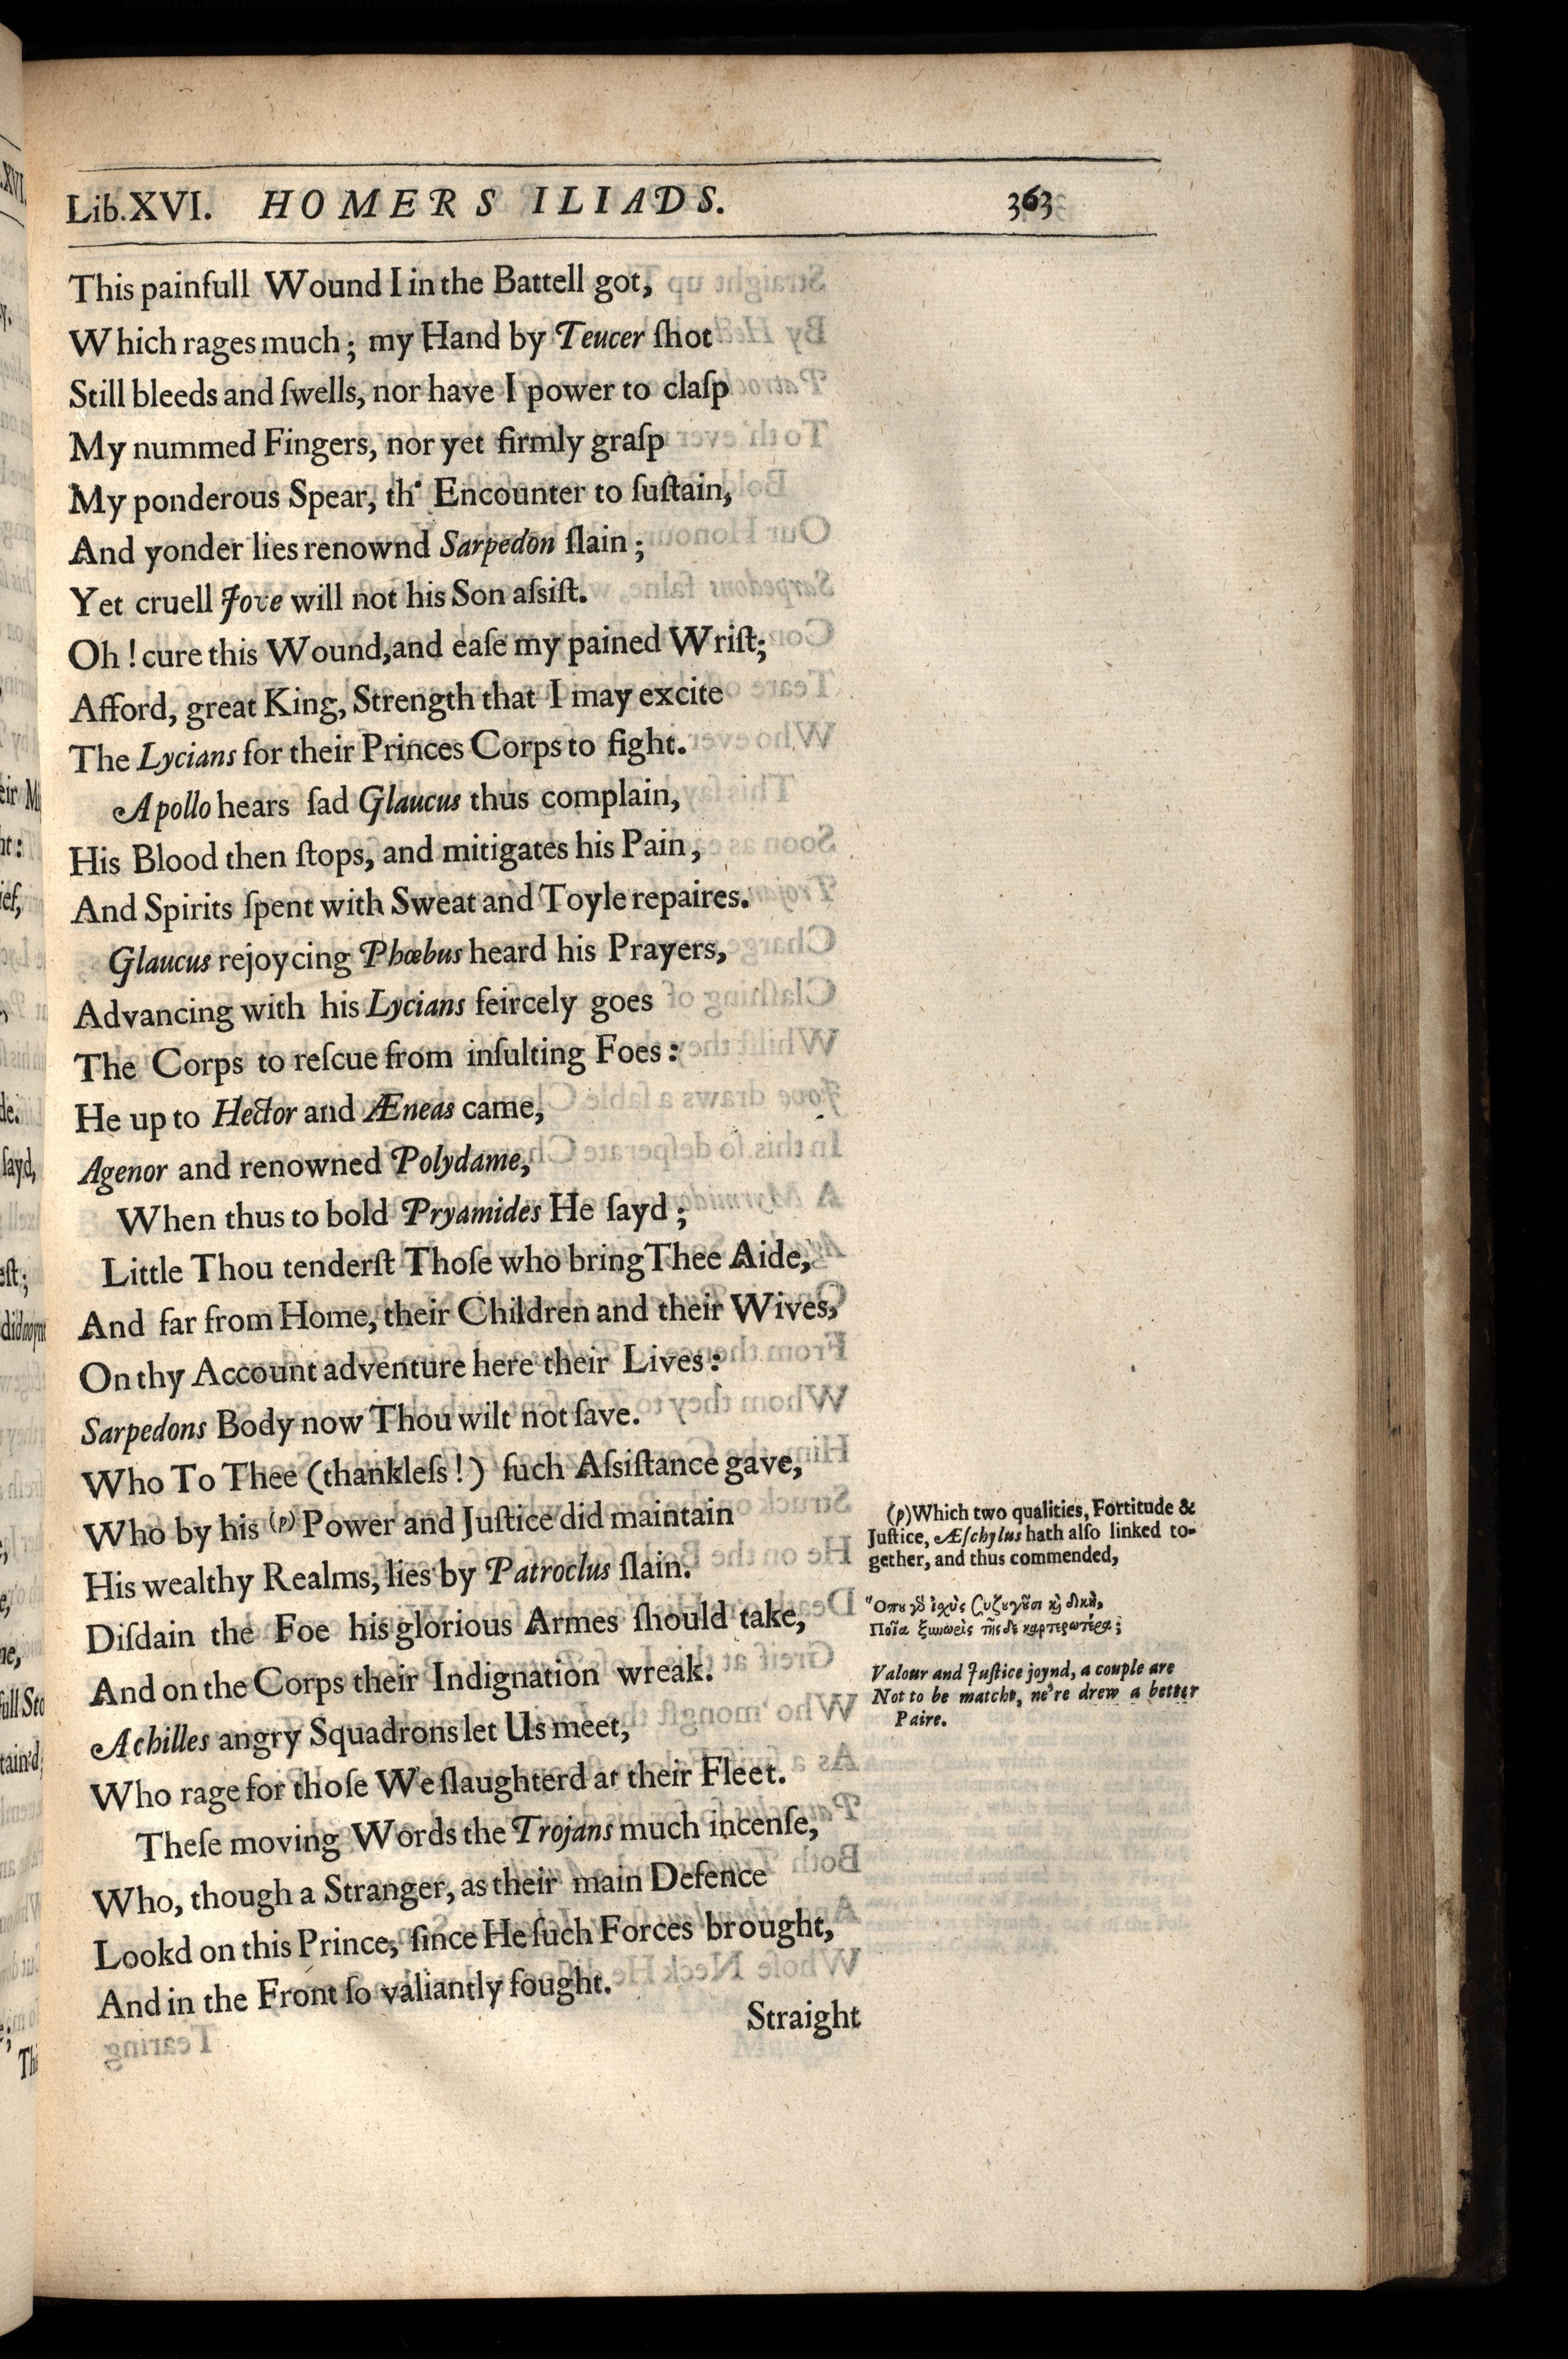 Lib.XVI. HOMERS ILIADS. 363
This painfull Wound I in the Battell got,
Which rages much; my Hand by Teucer ſhot
Still bleeds and ſwells, nor have I power to claſp
My nummed Fingers, nor yet firmly graſp
My ponderous Spear, th' Encounter to ſuſtain,
And yonder lies renownd Sarpedon ſlain;
Yet cruell Jove will not his Son aſsiſt.
Oh! cure this Wound,and eaſe my pained Wriſt;
Afford, great King, Strength that I may excite
The Lycians for their Princes Corps to fight.
Apollo hears ſad Glaucus thus complain,
His Blood then ſtops, and mitigates his Pain,
And Spirits ſpent with Sweat and Toyle repaires.
Glaucus rejoycing Phœbus heard his Prayers,
Advancing with his Lycians feircely goes
The Corps to reſcue from inſulting Foes:
He up to Hector and Æneas came,
Agenor and renowned Polydame,
When thus to bold Pryamides He ſayd;
Little Thou tenderſt Thoſe who bring Thee Aide,
And far from Home, their Children and their Wives,
On thy Account adventure here their Lives:
Sarpedons Body now Thou wilt not ſave.
Who To Thee (thankleſs!) ſuch Aſsiſtance gave,
Who by his (p) Power and Juſtice did maintain
His wealthy Realms, lies by Patroclus ſlain.
Diſdain the Foe his glorious Armes ſhould take,
And on the Corps their Indignation wreak.
Achilles angry Squadrons let Us meet,
Who rage for thoſe We ſlaughterd at their Fleet.
Theſe moving Words the Trojans much incenſe,
Who, though a Stranger, as their main Defence
Lookd on this Prince, ſince He ſuch Forces brought,
And in the Front ſo valiantly fought.
Straight
(p)Which two qualities, Fortitude &
Juſtice, Æſchylus hath alſo linked to-
gether, and thus commended,
Ὅπου γὸ ἰχὺς συζυγοῦσι κὶ δίκη,
Ποῖα ξυνωρὶς τῆςδε καρτερωτέρα;
Valour and Juſtice joynd, a couple are
Not to be matcht, ne're drew a better
Paire.